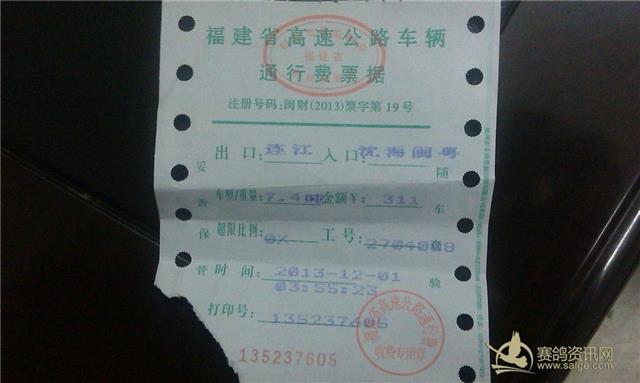 福建省高速公路车辆
通行费票据
注册号码:闽财(2013)票字第19号
出口:连江 入口:沈海闽粤
车型/重量:7.4吨 金额¥:311
超限比例:0% 工号:2704008
时间:2013-12-01
03:55:23
打印号:135237605
135237605
妥善保管
随车查验
福建省
福建省高速公路通行费
收费专用章
赛鸽资讯网
www.saige.com